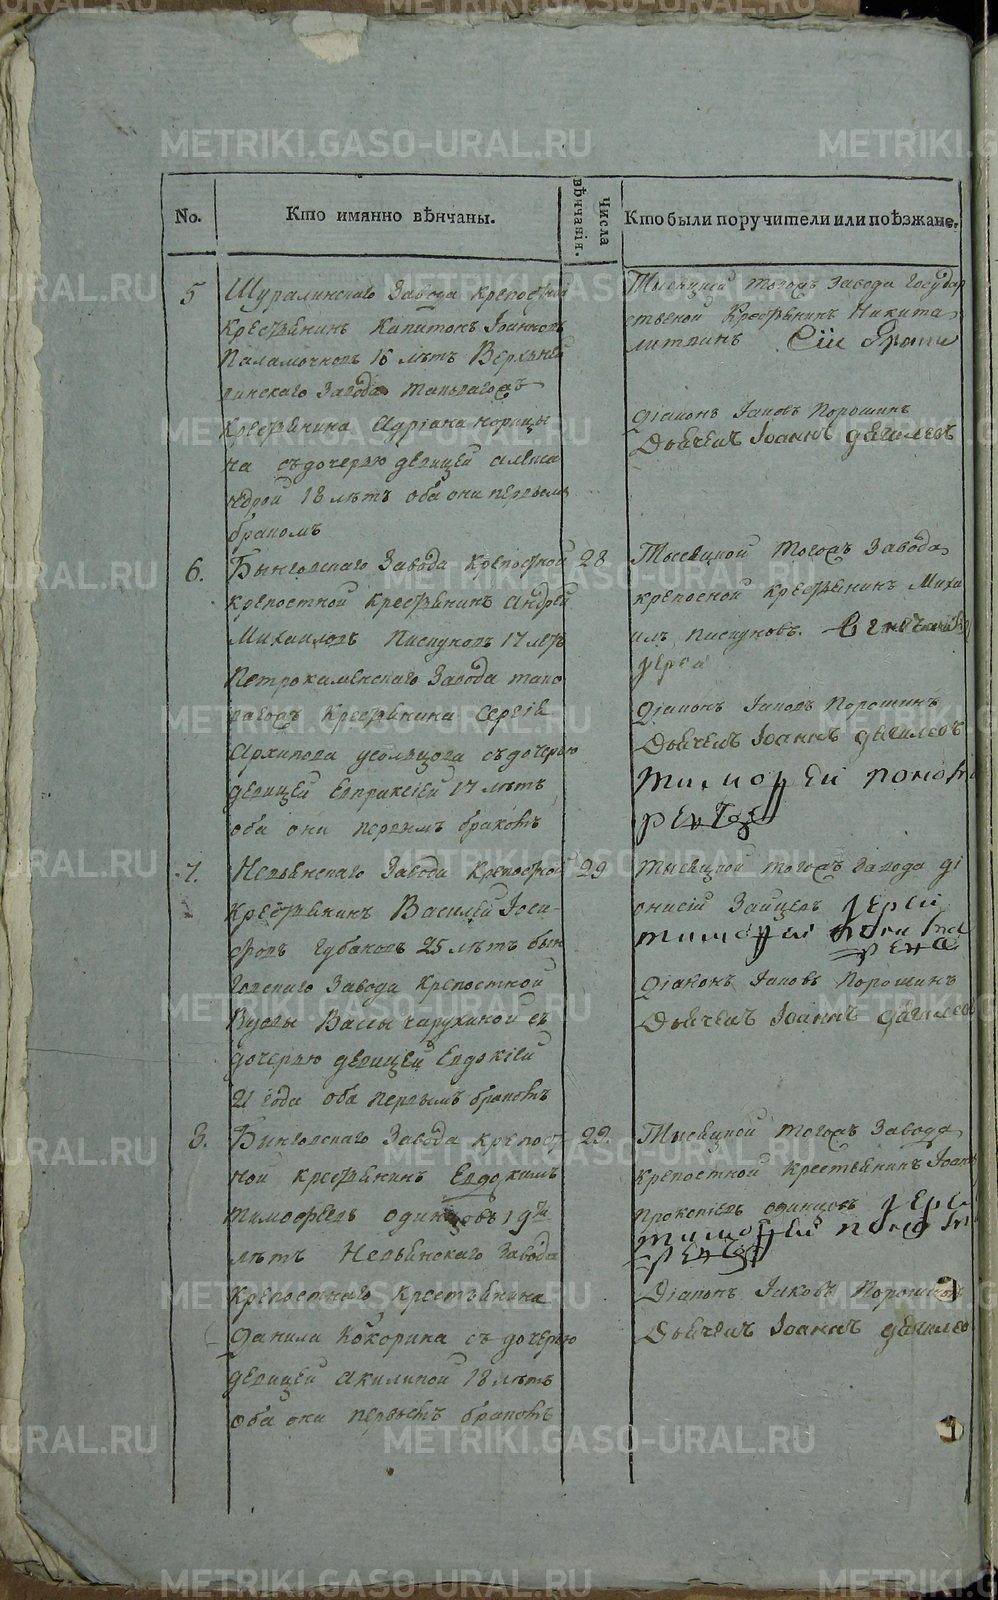 No.
Кто имянно вѣнчаны.
Числа
вѣнчанія.
Кто были поручители или поѣзжане.
5
Шуралинскаго Завода крепостной
крестьянинъ Капитонъ
16 лѣтъ
Завода таковагожъ
крестьянина Адріана
на съ дочерью девицей Алекса
ндрой 18 лѣтъ оба они первымъ
бракомъ
Тысяцкой тогожъ Завода Государ
ственой крестьянинъ Никита
Сіи браки
Діаконъ Іаковъ Порошинъ
Дьячекъ Іоаннъ
6.
Бынговскаго Завода крепостной
крепостной крестьянинъ Андрей
Михаиловъ Пискуновъ 17 летъ
Петрокаменскаго Завода тако
вагожъ крестьянина Сергія
Архипова съ дочерью
девицей Евпраксіей 17 лѣтъ
оба они первымъ бракомъ
28
Тысяцкой тогожъ Завода
крепосной крестьянинъ Миха
илъ Пискуновъ.
Іерей
Діаконъ Іаковъ Порошинъ
Дьячекъ Іоаннъ
Тимоѳей
7.
Невьянскаго Завода крепостной
крестьянинъ Василей Іоси-
фовъ Губановъ 25 лѣтъ Бын
говскаго Завода крепостной
Вдовы Вассы съ
дочерью девицей Евдокіей
21 года оба первымъ бракомъ
29
Тысяцкой тогожъ Завода Ді
онисій Зайцевъ Іерей
Тимоѳей
Діаконъ Іаковъ Порошинъ
Дьячекъ Іоаннъ
8.
Бынговскаго Завода крепост
ной крестьянинъ Евдокимъ
Тимофеевъ Одинцовъ 19ти
лѣтъ Невьянскаго Завода
крепостнаго крестьянина
Данила Кокорина съ дочерью
девицей Акилиной 18 лѣтъ
оба они первымъ бракомъ
29.
Тысяцкой тогожъ Завода
крепостной крестьянинъ Іоаннъ
Прокопіевъ Одинцовъ Іерей
Тимоѳей
Діаконъ Іаковъ Порошинъ
Дьячекъ Іоаннъ
METRIKI.GASO-URAL.RU